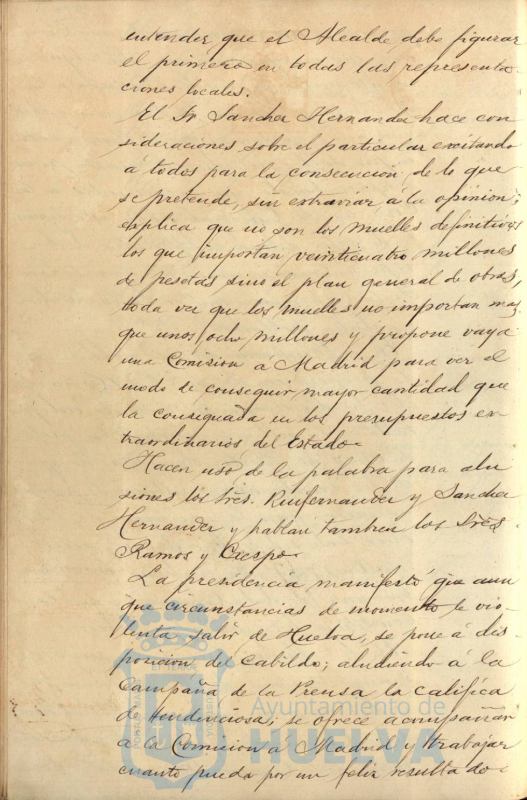 entender que el Alcalde debe figurar
el primero en todas las representa
ciones locales.
El Sr Sanchez Hernandez hace con
sideraciones sobre el particular excitando
á todos para la consecución de lo que
se pretende, sin extraviar á la opinion;
explica que no son los muelles definitivos
los que importan veinticuatro millones
de pesetas sino el plan general de obras,
toda vez que los muelles no importan mas
que unos ocho millones y propone vaya
una Comision á Madrid para ver el
modo de conseguir mayor cantidad que
la consignada en los presupuestos ex-
traordinarios del Estado.
Hacen uso de la palabra para alu
siones los Sres. Ruifernandez y Sanchez
Hernandez y hablan tambien los Sres
Ramos y Crespo.
La presidencia manifestó que aun
que circunstancias de momento le vio-
lenta salir de Huelva, se pone á dis-
posicion del Cabildo; aludiendo á la
Campaña de la Prensa la califica
de tendenciosa; se ofrece acompañar
á la Comision á Madrid y trabajar
cuanto pueda por un feliz resultado.
Ayuntamiento de
HUELVA